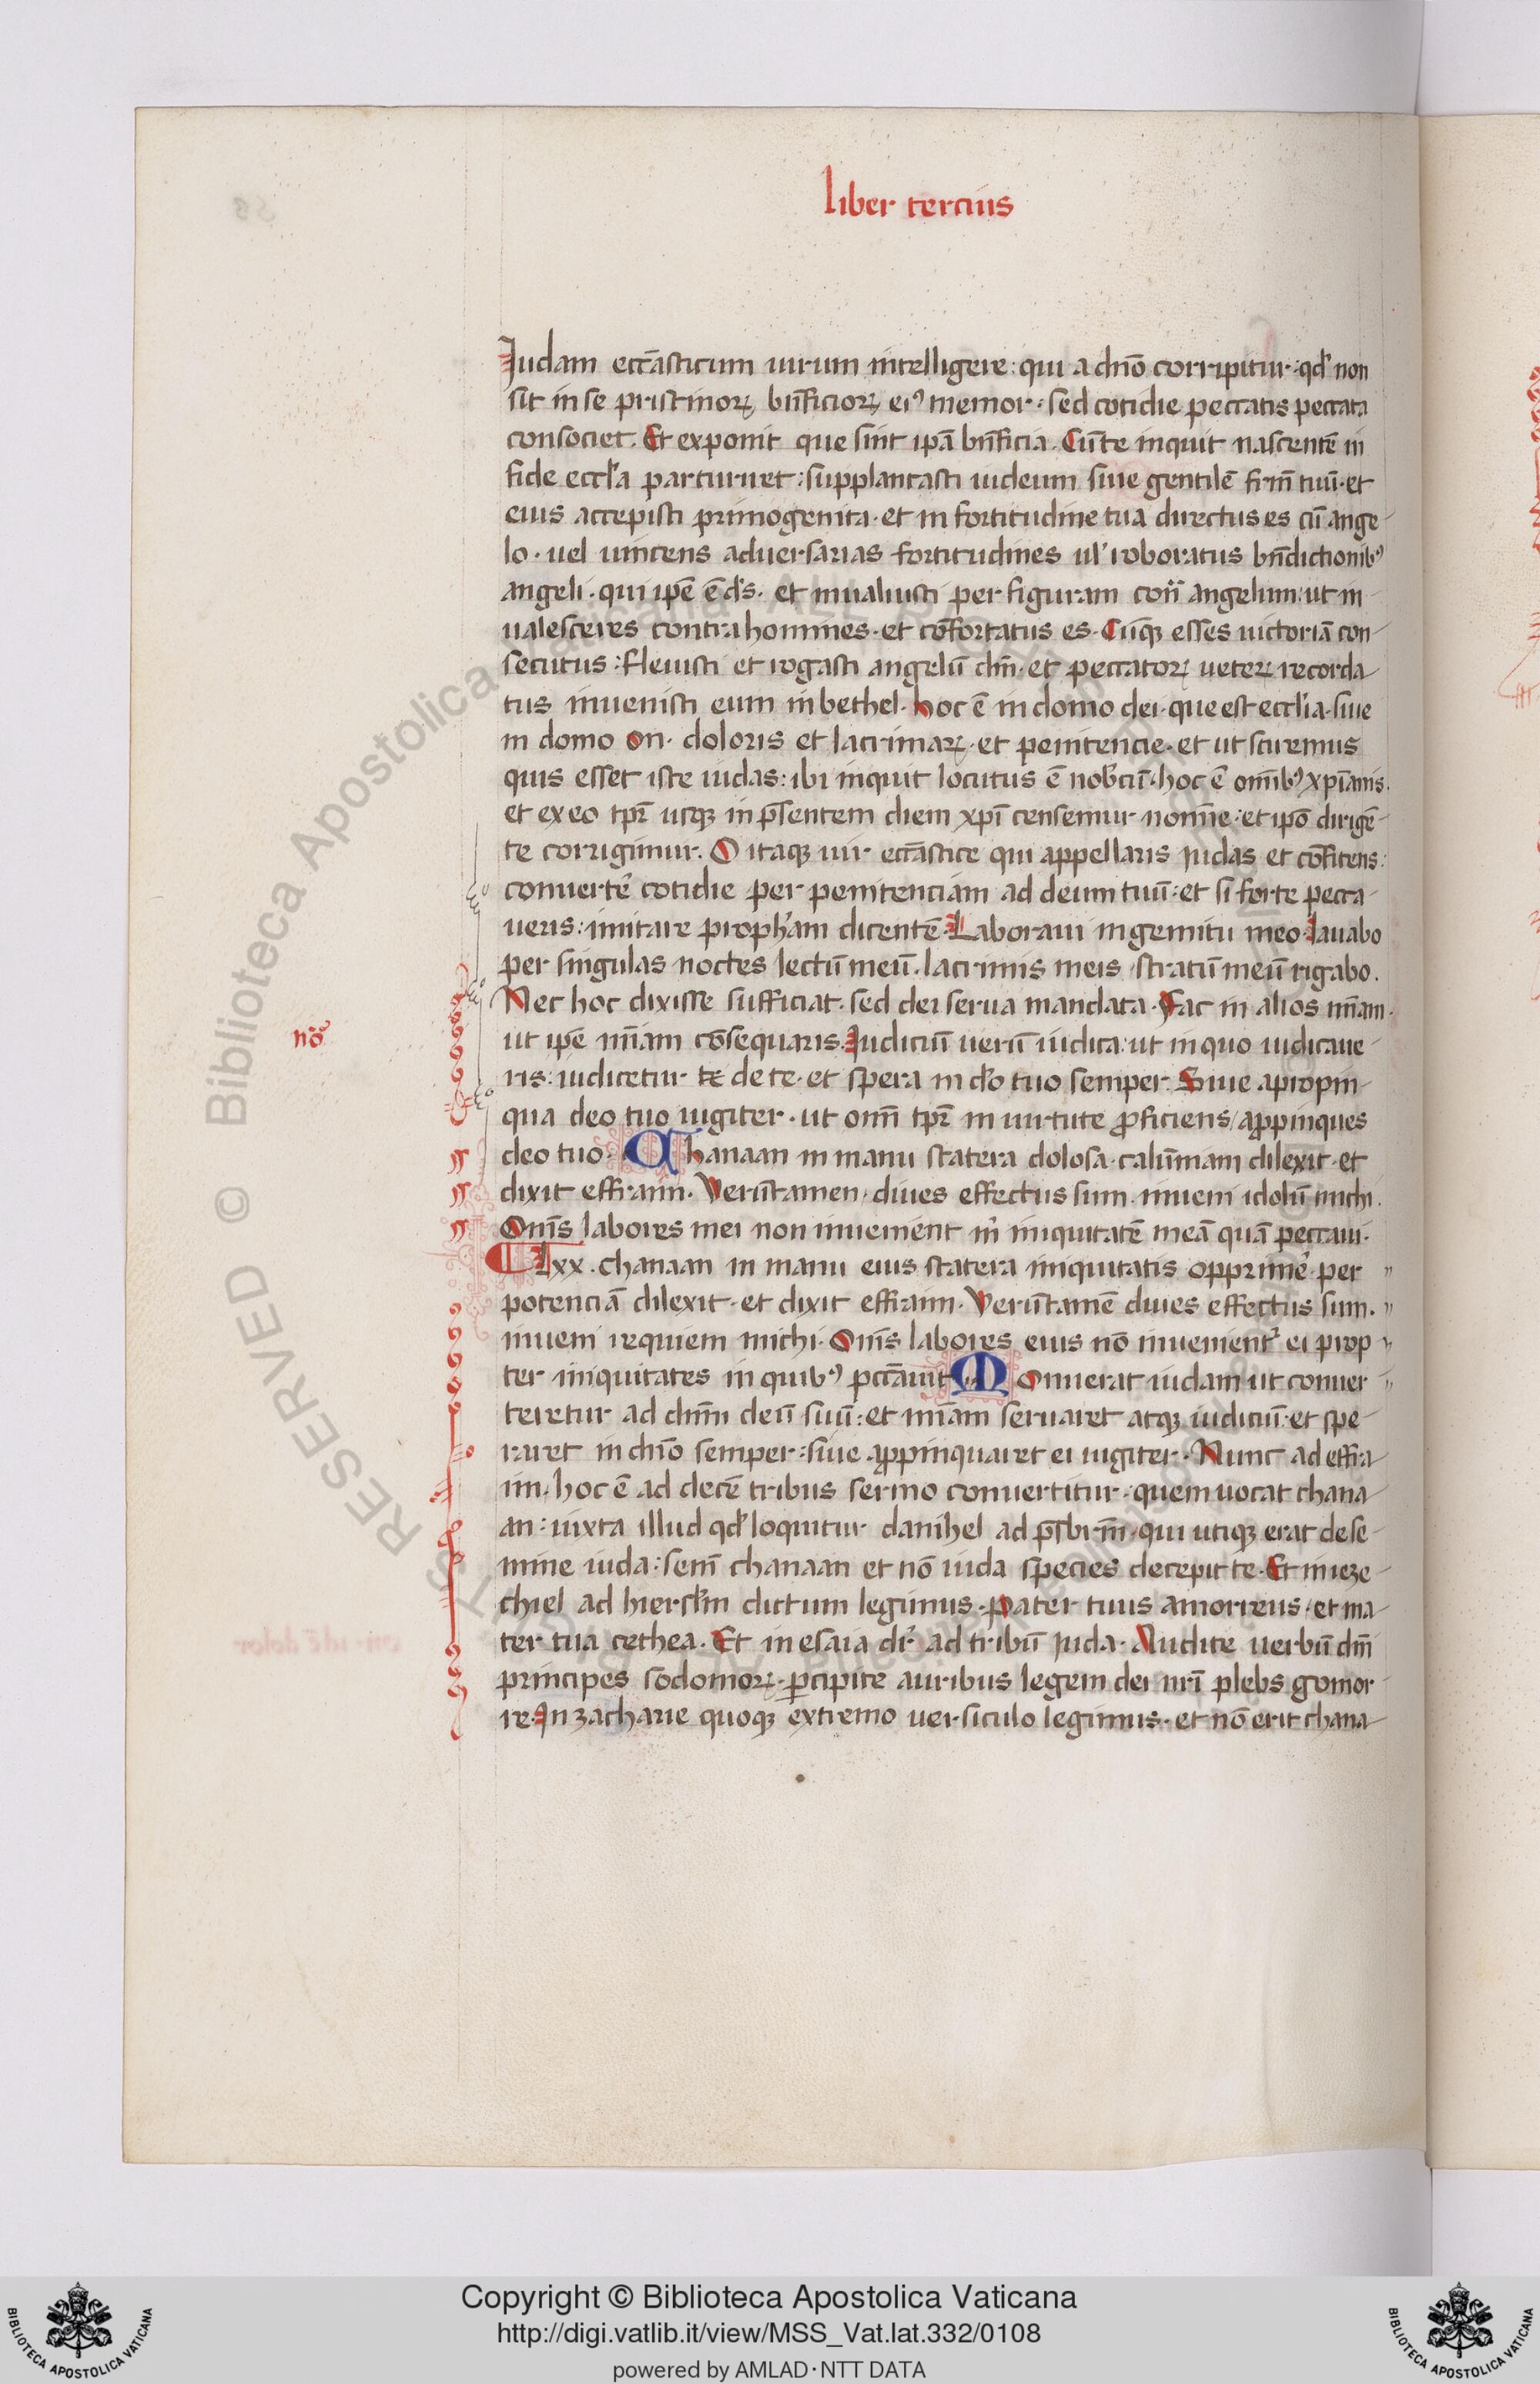 liber tercius
Iudam eccᷓasticum uirum intelligere: qui a dn̄o corripitur: qđ non
sit in se pristinoꝝ bn̄ficioꝝ eiꝰ memor: sed cotidie peccatis peccata
consociet. Et exponit que sint ip̄a bn̄ficia. Cū te inquit nascentē in
fide eccl̓a parturiret: supplantasti iudeum siue gentilē fr̄m tuū. et
eius accepisti primogenita. et in fortitudine tua directus es cū ange
lo. uel uincens aduersarias fortitudines ul̓ roboratus bn̄dictionibꝰ
angeli. qui ip̄e ē d̓s. et inualuisti per figuram cont̄ angelum: ut in
ualesceres contra homines. et cōfortatus es. Cūqꝫ esses uictoriā con
secutus: fleuisti et rogasti angelū dn̄m. et peccatoꝝ ueteꝝ recorda
tus inuenisti eum in bethel. hoc ē in domo dei. que est eccl̓ia. siue
in domo on. doloris et lacrimaꝝ. et penitencie. et ut sciremus
quis esset iste iudas: ibi inquit locutus ē nobcū. hoc ē om̄ibꝰ xp̄ianis.
et ex eo tpr̄ usqꝫ in p̄sentem diem xp̄i censemur nomine: et ip̄o dirigē
te corrigimur. O itaqꝫ uir eccᷓastice qui appellaris iudas et cōfitens:
conuerte᷑ cotidie per penitenciam ad deum tuū: et si forte pecca
ueris: imitare proph̓am dicentē Laboraui in gemitu meo. lauabo
per singulas noctes lectū meū. lacrimis meis stratū meū rigabo.
Nec hoc dixisse sufficiat. sed dei serua mandata. Fac in alios mīam.
nō
ut ip̄e mīam cōsequaris. Iudiciū uerū iudica: ut in quo iudicaue
ris: iudicetur te de te. et spera in d̓o tuo semper. Siue apropin
qua deo tuo iugiter. ut om̄i tpr̄ in uirtute ꝓficiens appinques
deo tuo. Chanaan in manu statera dolosa. calūniam dilexit. et
dixit effraim. Verūtamen diues effectus sum. inueni idolū michi.
Om̄s labores mei non inuenient m̓ iniquitatē meā quā peccaui.
Lxx. chanaan in manu eius statera iniquitatis opprime᷑ per
potenciā dilexit. et dixit effraim. Verūtamē diues effectus sum.
inueni requiem michi. Om̄s labores eius nō inuenient᷑ ei prop
ter iniquitates in quibꝰ pccāuit. Monuerat iudam ut conuer
teretur ad dn̄m deū suū: et mīam seruaret atqꝫ iudiciū: et spe
raret in dn̄o semper: siue appinquaret ei iugiter. Nunc ad effra
im. hoc ē ad decē tribus sermo conuertitur. quem uocat chana
an: iuxta illud qđ loquitur danihel ad p̄sbrm̄. qui utiqꝫ erat de se
mine iuda: sem̄ chanaan et nō iuda species decepit te. Et in ieze
chiel ad hierl̓m dictum legimus. Pater tuus amorreus. et ma
ter tua cethea. Et in esaia dr̓ ad tribū iuda. Audite uerbū dn̄i
principes sodomoꝝ. ꝑcipite auribus legem dei nr̄i plebs gomor
re. In zacharie quoqꝫ extremo uersiculo legimus. et nō erit chana
Copyright © Biblioteca Apostolica Vaticana
http://digi.vatlib.it/view/MSS_Vat.lat.332/0108
powered by AMLAD·NTT DATA